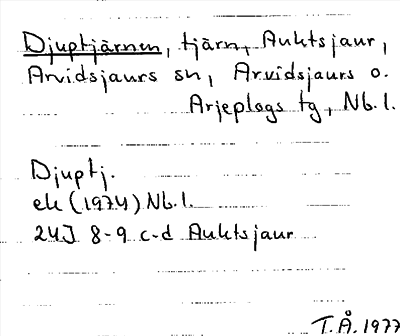 Djuptjärnen, tjärn, Auktsjaur,
Arvidsjaurs sn, Arvidsjaurs o.
Arjeplogs tg, Nb.l.
Djuptj.
ek (1974) Nb.l.
24J 8-9 c-d Auktsjaur
T.Å. 1977